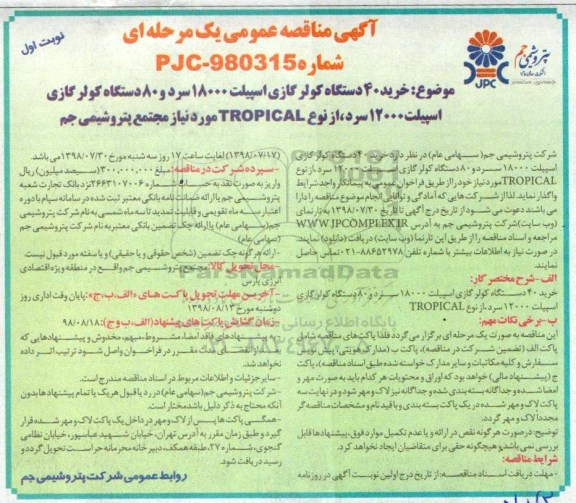 آگهی مناقصه عمومی یک مرحله ای
نوبت اول
شماره PJC-980315
پتروشیمی جم
JPC
موضوع: خرید ۴۰ دستگاه کولر گازی اسپیلت ۱۸۰۰۰ سرد و ۸۰ دستگاه کولر گازی
اسپیلت ۱۲۰۰۰ سرد، از نوع TROPICAL مورد نیاز مجتمع پتروشیمی جم
شرکت پتروشیمی جم (سهامی عام) در نظر دارد خرید ۴۰ دستگاه کولر گازی
اسپیلت ۱۸۰۰۰ سرد و ۸۰ دستگاه کولر گازی اسپیلت ۱۲۰۰۰ سرد از نوع
TROPICAL مورد نیاز خود را از طریق فراخوان عمومی به پیمانکار واجد شرایط
واگذار نماید. لذا از شرکت هایی که آمادگی و توانایی انجام موضوع مناقصه را دارا
می باشند دعوت می شود از تاریخ درج آگهی تا تاریخ ۱۳۹۸/۰۷/۳۰ به تارنمای
(وب سایت) شرکت پتروشیمی جم به آدرس WWW.JPCOMPLEX.IR
مراجعه و اسناد مناقصه را از طریق این تارنما (وب سایت) دریافت (دانلود) نمایند.
در صورت نیاز به اطلاعات بیشتر با شماره تلفن ۸۸۶۵۲۹۷۸-۰۲۱ تماس حاصل
نمایند.
الف - شرح مختصر کار:
خرید ۴۰ دستگاه کولر گازی اسپیلت ۱۸۰۰۰ سرد و ۸۰ دستگاه کولر گازی
اسپیلت ۱۲۰۰۰ سرد، از نوع TROPICAL
ب - برخی نکات مهم:
این مناقصه به صورت یک مرحله ای برگزار می گردد فلذا پاکت های مناقصه شامل
پاکت الف (تضمین شرکت در مناقصه)، پاکت ب (مدارک هویتی)، توان
سفارش و کلیه مکاتبات و سایر مدارک خواسته شده طبق اسناد مناقصه)، پاکت
ج (پیشنهاد مالی) خواهد بود که اوراق و محتویات هر کدام باید به صورت مهر و
امضا شده و جداگانه بسته بندی شده و جداگانه نیز لاک و مهر شود و در نهایت سه
پاکت لاک و مهر شده در یک پاکت بسته بندی و با قید نام و مشخصات مناقصه گر
مجدداً لاک و مهر گردد.
توضیح: در صورت هر گونه نقص در ارائه و یا عدم تکمیل موارد فوق، پیشنهادها قابل
بررسی نمی باشد و هیچگونه حقی برای متقاضیان ایجاد نخواهد کرد.
شرایط مناقصه:
- مهلت دریافت اسناد مناقصه: از تاریخ درج اولین نوبت آگهی در روزنامه
(۱۳۹۸/۰۷/۱۷) لغایت ساعت ۱۷ روز سه شنبه مورخ ۱۳۹۸/۰۷/۳۰ می باشد.
- سپرده شرکت در مناقصه: مبلغ ۳۰۰,۰۰۰,۰۰۰ (سیصد میلیون) ریال
واریز به صورت نقد به حساب شماره ۲۶۶۳۱۰۷۰۰۶ نزد بانک تجارت شعبه
پتروشیمی جم یا ارائه ضمانت نامه بانکی معتبر ثبت شده در سامانه سپام با دوره
اعتبار سه ماه تقویمی و قابلیت تمدید تا سه ماه شمسی به نام شرکت پتروشیمی
جم (سهامی عام) یا ارائه چک تضمین بانکی معتبر به نام شرکت پتروشیمی جم
(سهامی عام)
- ارائه هر گونه چک تضمین (شخص حقوقی و یا حقیقی) و یا سفته مورد قبول نیست.
- محل تحویل کالا: مجتمع پتروشیمی جم واقع در منطقه ویژه اقتصادی
انرژی پارس
- آخرین مهلت تحویل پاکت های «الف، ب، ج»: پایان وقت اداری روز
دوشنبه مورخ ۱۳۹۸/۰۸/۱۳
- زمان گشایش پاکت های پیشنهاد (الف، ب و ج): ۹۸/۰۸/۱۸
- به پیشنهادهای فاقد امضا، مشروط، مبهم، مخدوش و پیشنهادهایی که
بعد از انقضاء مدت مقرر در فراخوان واصل شود ترتیب اثر داده
نخواهد شد.
- سایر جزئیات و اطلاعات مربوط در اسناد مناقصه مندرج است.
- شرکت پتروشیمی جم (سهامی عام) در رد یا قبول هر یک یا تمام پیشنهادها بدون
آنکه محتاج به ذکر دلیل باشد مختار است.
- همگی پاکت ها پس از لاک و مهر در داخل یک پاکت لاک و مهر شده قرار
گیرد و طبق زمان مقرر به آدرس تهران، خیابان شهید عباسپور، خیابان نظامی
گنجوی، شماره ۲۷، طبقه همکف، دبیرخانه محرمانه حراست تحویل گردد و
رسید دریافت شود.
روابط عمومی شرکت پتروشیمی جم
ParsNamadData